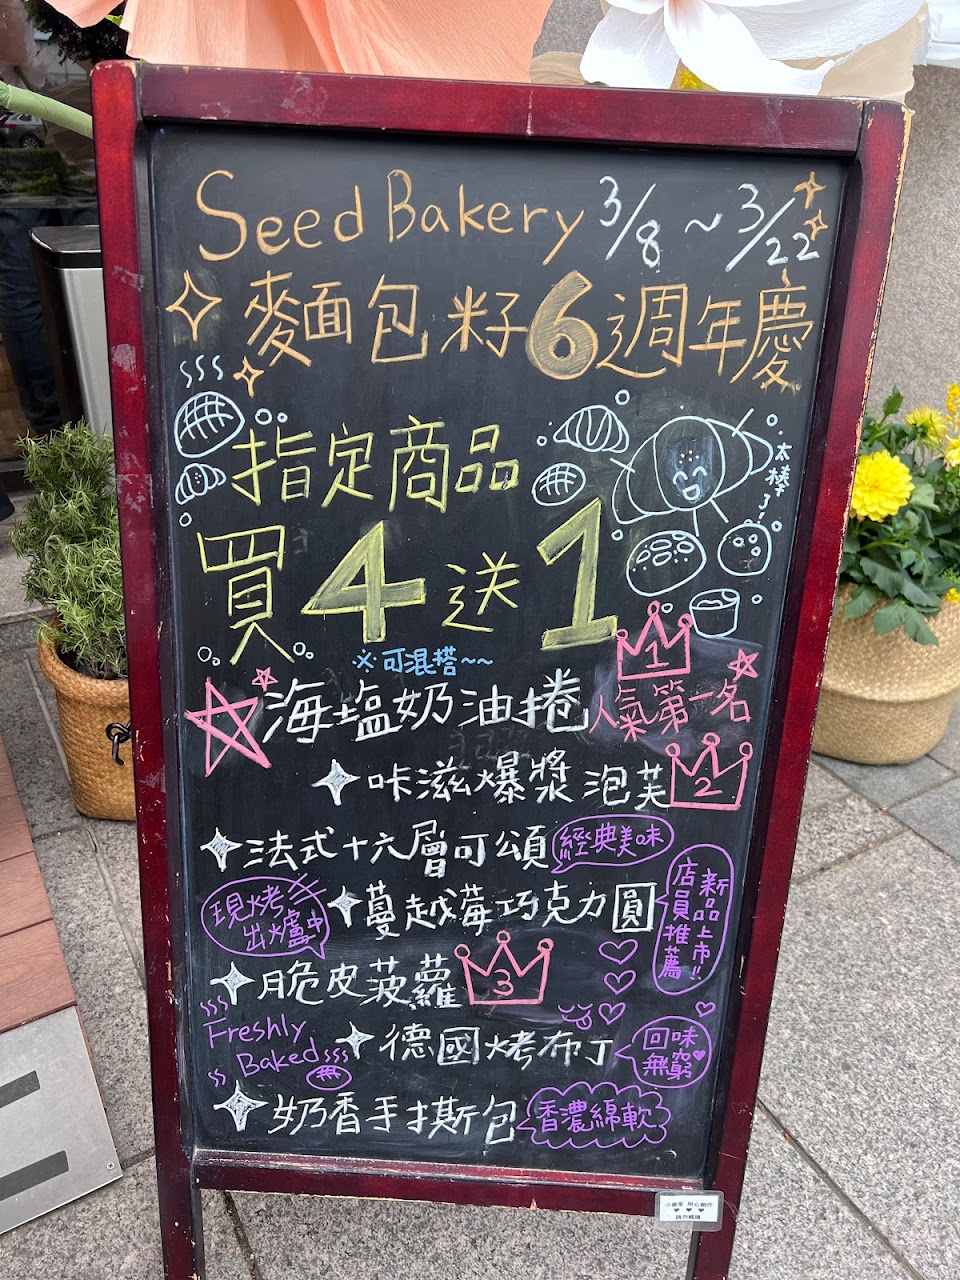 Seed Bakery 3/8~3/22
麵包籽6週年慶
指定商品
太棒了!
買4送1
※可混搭~~
1
海塩奶油捲 人氣第一名
咔滋爆漿泡芙 2
法式十六層可頌 經典美味
新品上市!!
店員推薦
現烤
出爐中
蔓越莓巧克力圓
脆皮菠蘿 3
Freshly
Baked
德國烤布丁
回味
無窮
奶香手撕包 香濃綿軟
小畫家 用心創作
請勿觸摸